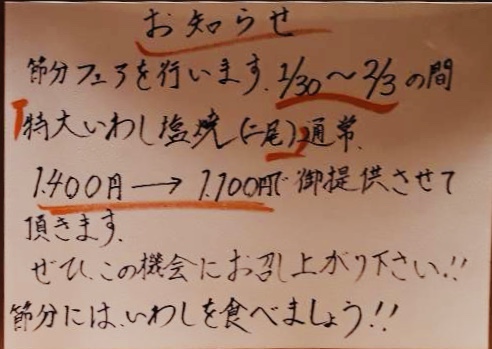 お知らせ
節分フェアを行います。1/30～2/3の間
「特大いわし塩焼(二尾)」通常、
1.400円→1.100円で御提供させて
頂きます。
ぜひ、この機会にお召し上がり下さい!!
節分には、いわしを食べましょう!!